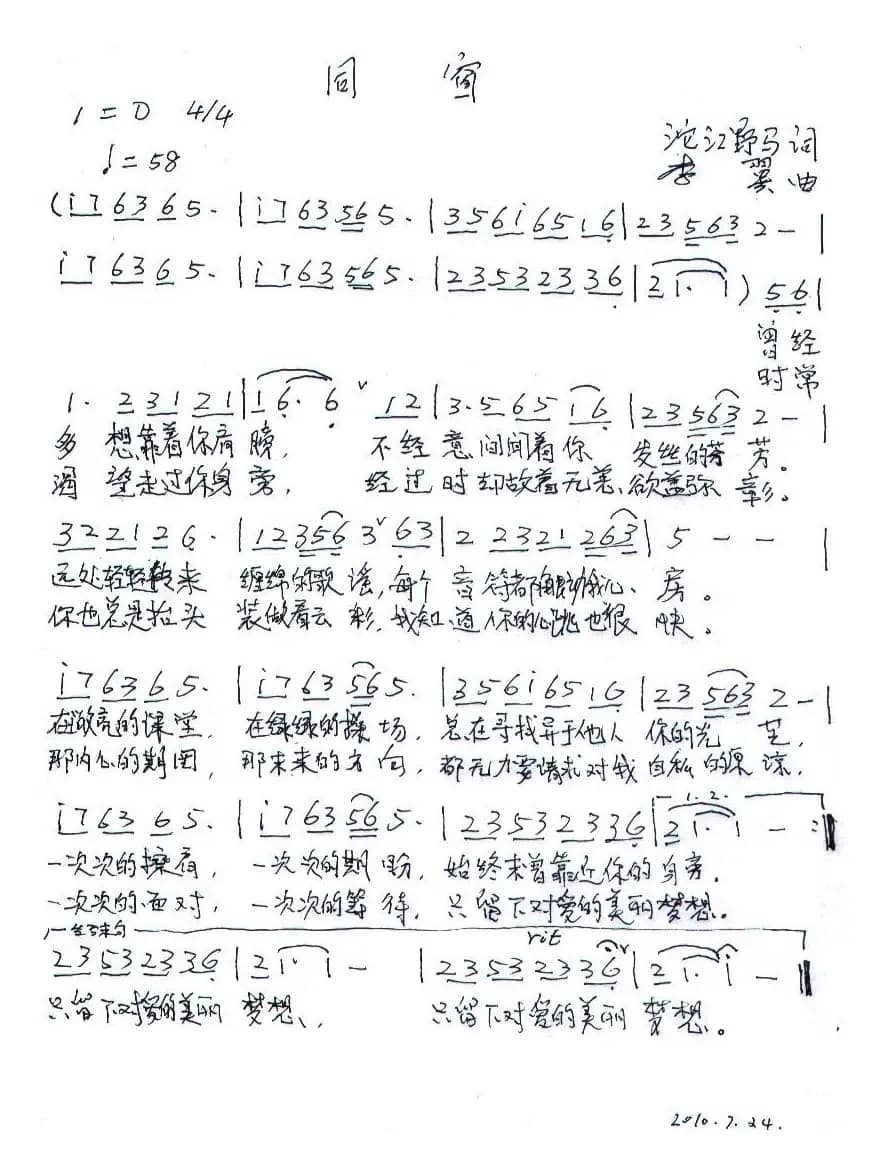 同 窗
1=D 4/4
♩=58
沱江野马词
李 翼 曲
(i7 63 6 5. | i7 63 56 5. | 35 6i 65 16 | 23 563 2 - |
i7 63 6 5. | i7 63 56 5. | 23 53 23 36 | 2 1. 1 ) 56 |
曾经
时常
1. 2 31 21 | 1 6. 6 ᵛ 12 | 3. 5 65 16 | 23 563 2 - |
多 想靠着你肩 膀, 不经意间闻着你 发丝的芬 芳。
渴 望走过你身 旁, 经过时却故着无恙、欲盖弥 彰。
32 21 2 6. | 12 356 3ᵛ 63 | 2 23 21 263 | 5 - - |
远处轻轻 来 缠绵的歌 谣,每个 音 符都 心 房。
你也总是抬头 装做看云 彩,我知 道 你的心跳也很 快。
i7 63 6 5. | i7 63 56 5. | 35 6i 65 16 | 23 563 2 - |
在敞亮的课堂, 在绿绿的操 场, 总在寻找异于他人 你的光 芒,
那内心的期图, 那未来的方 向, 都无力要请求对我 自私的原 谅,
i7 63 6 5. | i7 63 56 5. | 23 53 23 36 | 1.2. 2 1. 1 - :‖
一次次的擦肩, 一次次的期 盼, 始终未曾靠近你的 身旁.
一次次的面对, 一次次的等 待, 只留下对爱的美丽 梦想。
结束句 rit
23 53 23 36 | 2 1. 1 - | 23 53 23 36 ᵛ | 2 1. i - ‖
只留下对爱的美丽 梦想、 只留下对爱的美丽 梦想。
2010.7.24.